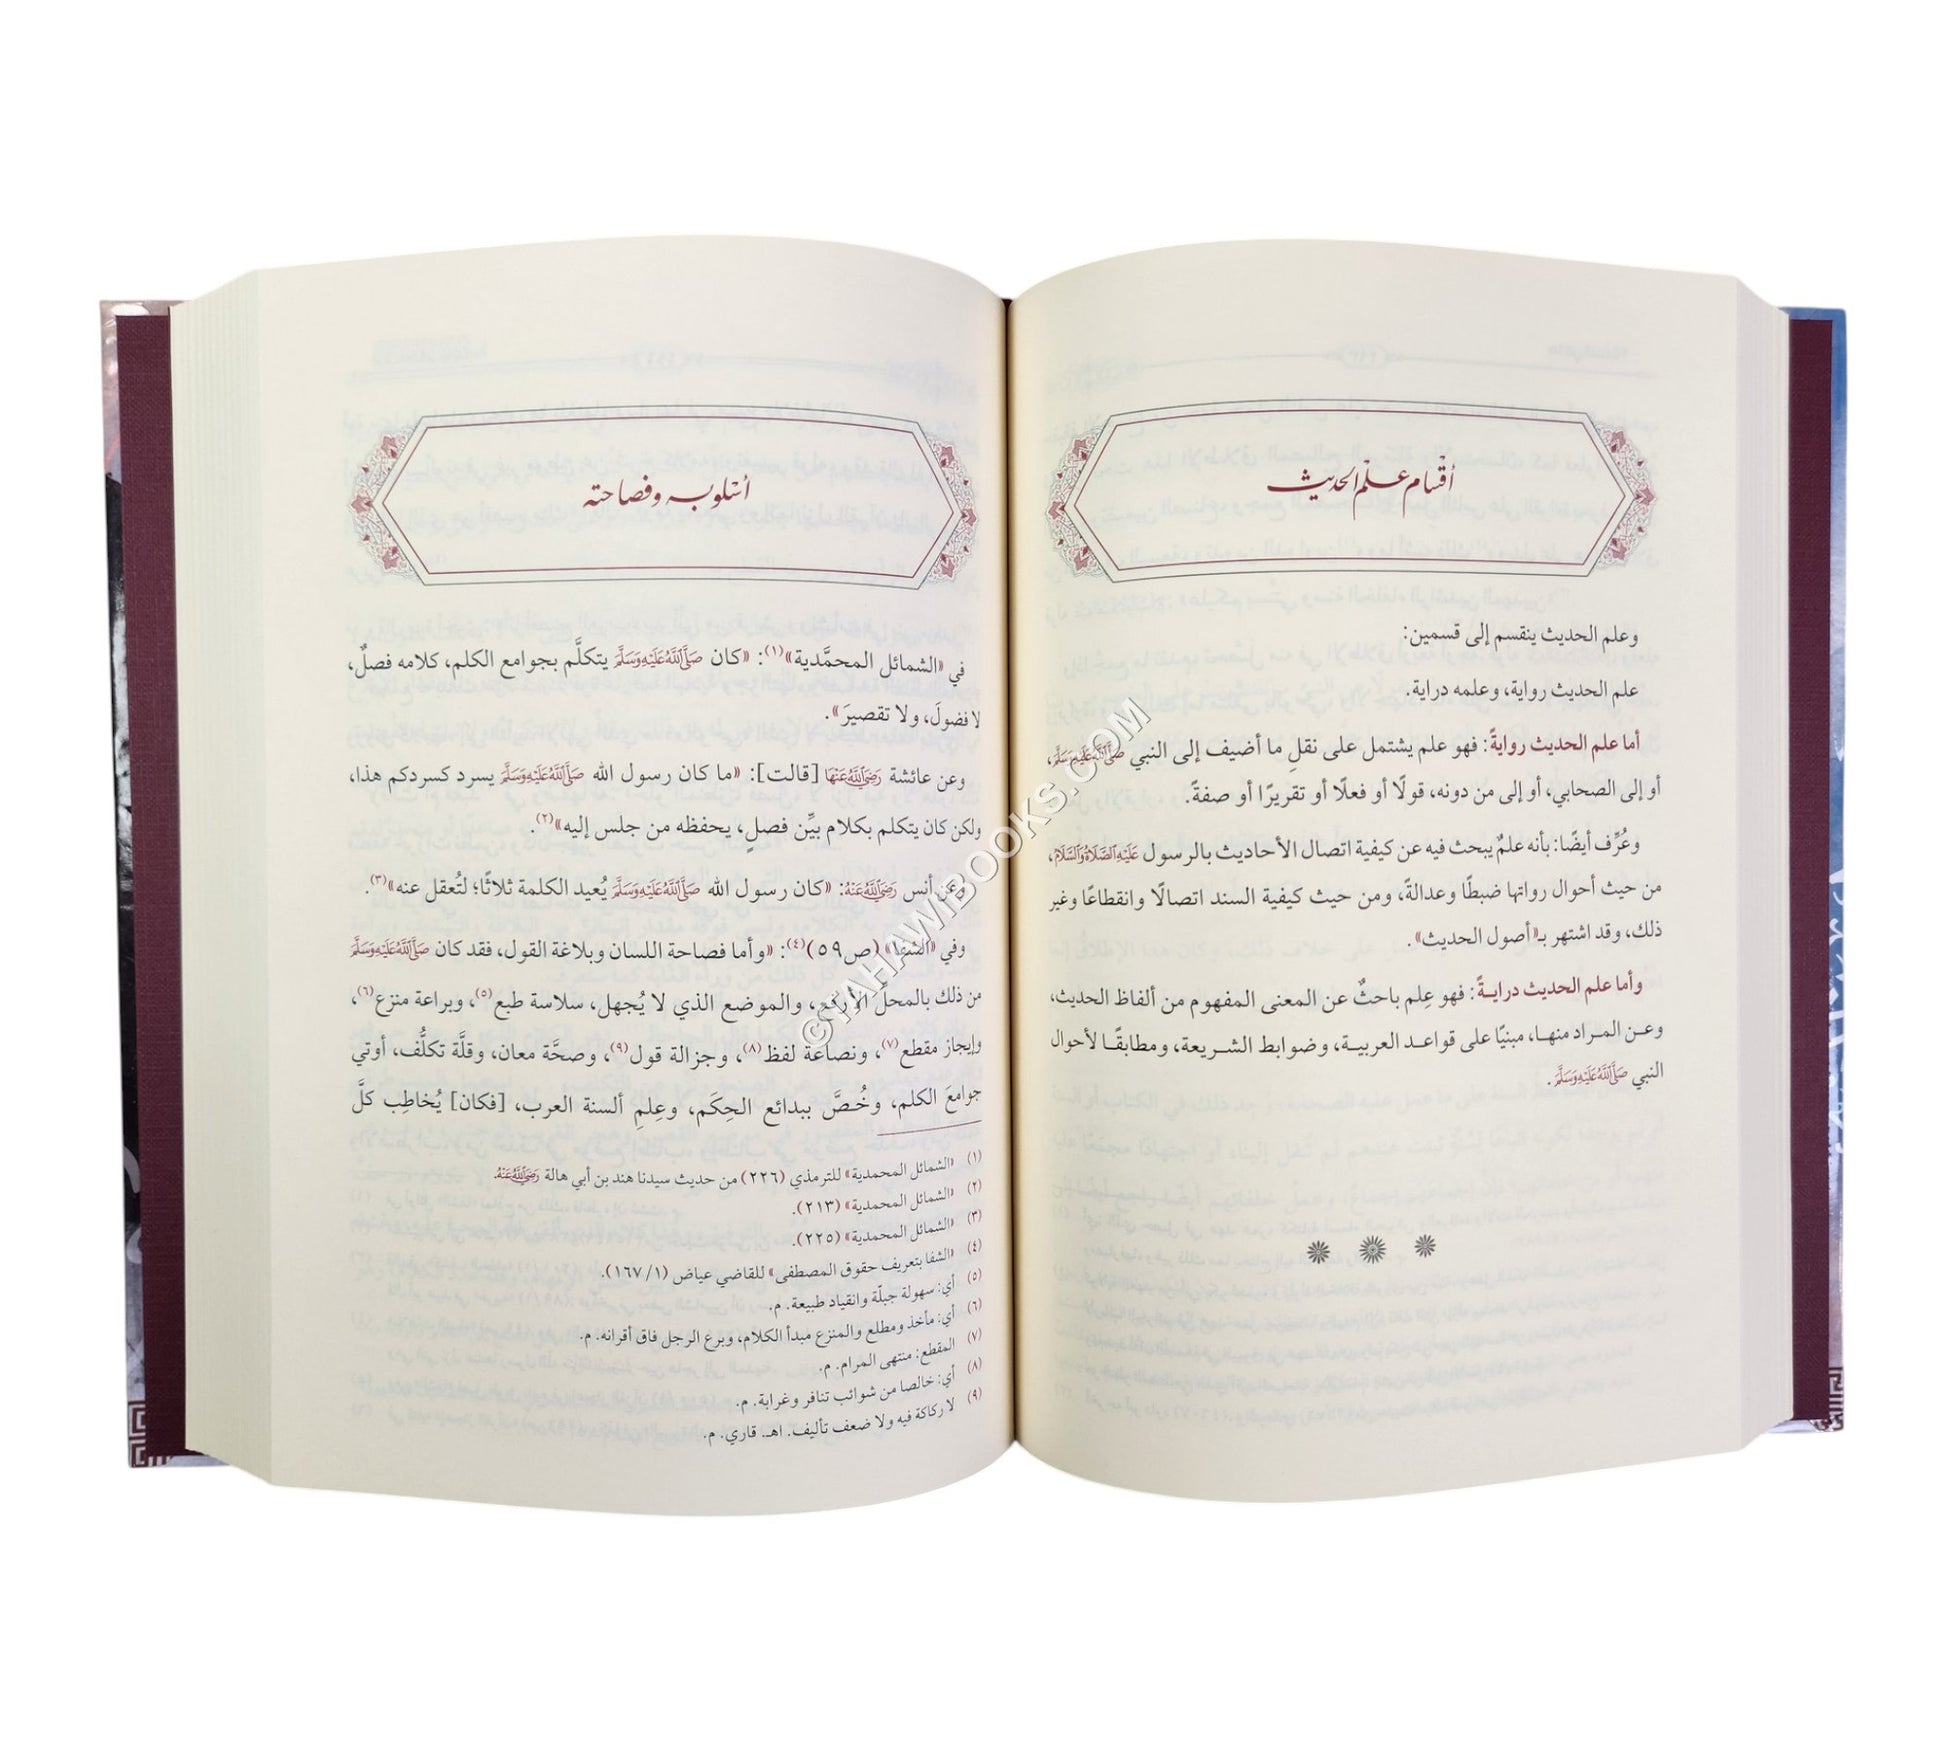 أقسام علم الحديث
وعلم الحديث ينقسم إلى قسمين:
علم الحديث رواية، وعلمه دراية.
أما علم الحديث روايةً: فهو علم يشتمل على نقلِ ما أضيف إلى النبي صَلَّى اللَّهُ عَلَيْهِ وَسَلَّمَ،
أو إلى الصحابي، أو إلى من دونه، قولًا أو فعلًا أو تقريرًا أو صفةً.
وعُرِّف أيضًا: بأنه علمٌ يبحث فيه عن كيفية اتصال الأحاديث بالرسول عَلَيْهِ الصَّلَاةُ وَالسَّلَامُ،
من حيث أحوال رواتها ضبطًا وعدالةً، ومن حيث كيفية السند اتصالًا وانقطاعًا وغير
ذلك، وقد اشتهر بـ«أصول الحديث».
وأما علم الحديث درايـةً: فهو عِلم باحثٌ عن المعنى المفهوم من ألفاظ الحديث،
وعـن المـراد منهـا، مبنيًا على قواعـد العربيـة، وضوابط الشـريعة، ومطابقًـا لأحوال
النبي صَلَّى اللَّهُ عَلَيْهِ وَسَلَّمَ.
أسلوبه وفصاحته
في «الشمائل المحمَّدية»(١): «كان صَلَّى اللَّهُ عَلَيْهِ وَسَلَّمَ يتكلَّم بجوامع الكلم، كلامه فصلٌ،
لا فضولَ، ولا تقصيرَ».
وعن عائشة رَضِيَ اللَّهُ عَنْهَا [قالت]: «ما كان رسول الله صَلَّى اللَّهُ عَلَيْهِ وَسَلَّمَ يسرد كسردكم هذا،
ولكن كان يتكلم بكلام بيِّن فصلٍ، يحفظه من جلس إليه»(٢).
وعن أنس رَضِيَ اللَّهُ عَنْهُ: «كان رسول الله صَلَّى اللَّهُ عَلَيْهِ وَسَلَّمَ يُعيد الكلمة ثلاثًا؛ لتُعقل عنه»(٣).
وفي «الشفا» (ص٥٩)(٤): «وأما فصاحة اللسان وبلاغة القول، فقد كان صَلَّى اللَّهُ عَلَيْهِ وَسَلَّمَ
من ذلك بالمحلِّ الأرفع، والموضع الذي لا يُجهل، سلاسة طبع(٥)، وبراعة منزع(٦)،
وإيجاز مقطع(٧)، ونصاعة لفظ(٨)، وجزالة قول(٩)، وصحَّة معان، وقلَّة تكلُّف، أوتي
جوامعَ الكلم، وخُصَّ ببدائع الحِكَم، وعِلمِ ألسنة العرب، [فكان] يُخاطِب كلَّ
(١) «الشمائل المحمدية» للترمذي (٢٢٦) من حديث سيدنا هند بن أبي هالة رَضِيَ اللَّهُ عَنْهُ.
(٢) «الشمائل المحمدية» (٢١٣).
(٣) «الشمائل المحمدية» (٢٢٥).
(٤) «الشفا بتعريف حقوق المصطفى» للقاضي عياض (١/ ١٦٧).
(٥) أي: سهولة جبلّة وانقياد طبيعة. م.
(٦) أي: مأخذ ومطلع والمنزع مبدأ الكلام، وبرع الرجل فاق أقرانه. م.
(٧) المقطع: منتهى المرام. م.
(٨) أي: خالصا من شوائب تنافر وغرابة. م.
(٩) لا ركاكة فيه ولا ضعف تأليف. اهـ. قاري. م.
©TAHAWIBOOKS.COM